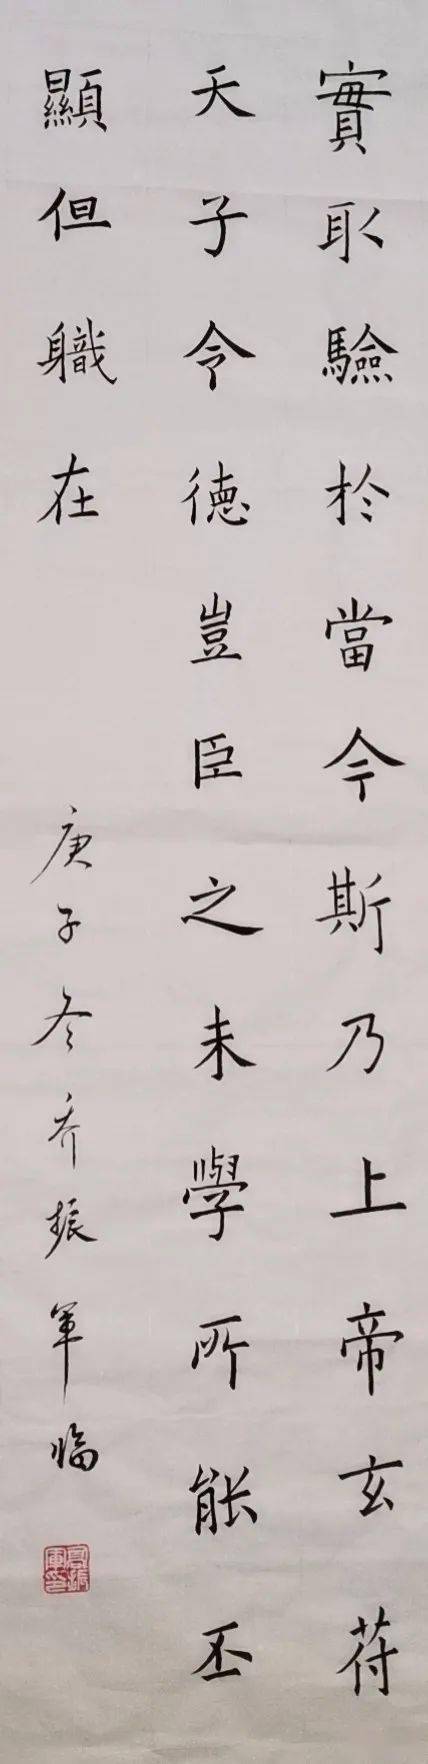 實取驗於當今斯乃上帝玄荷
天子令德豈臣之未學所能丕
顯但職在
庚子冬乔振军临